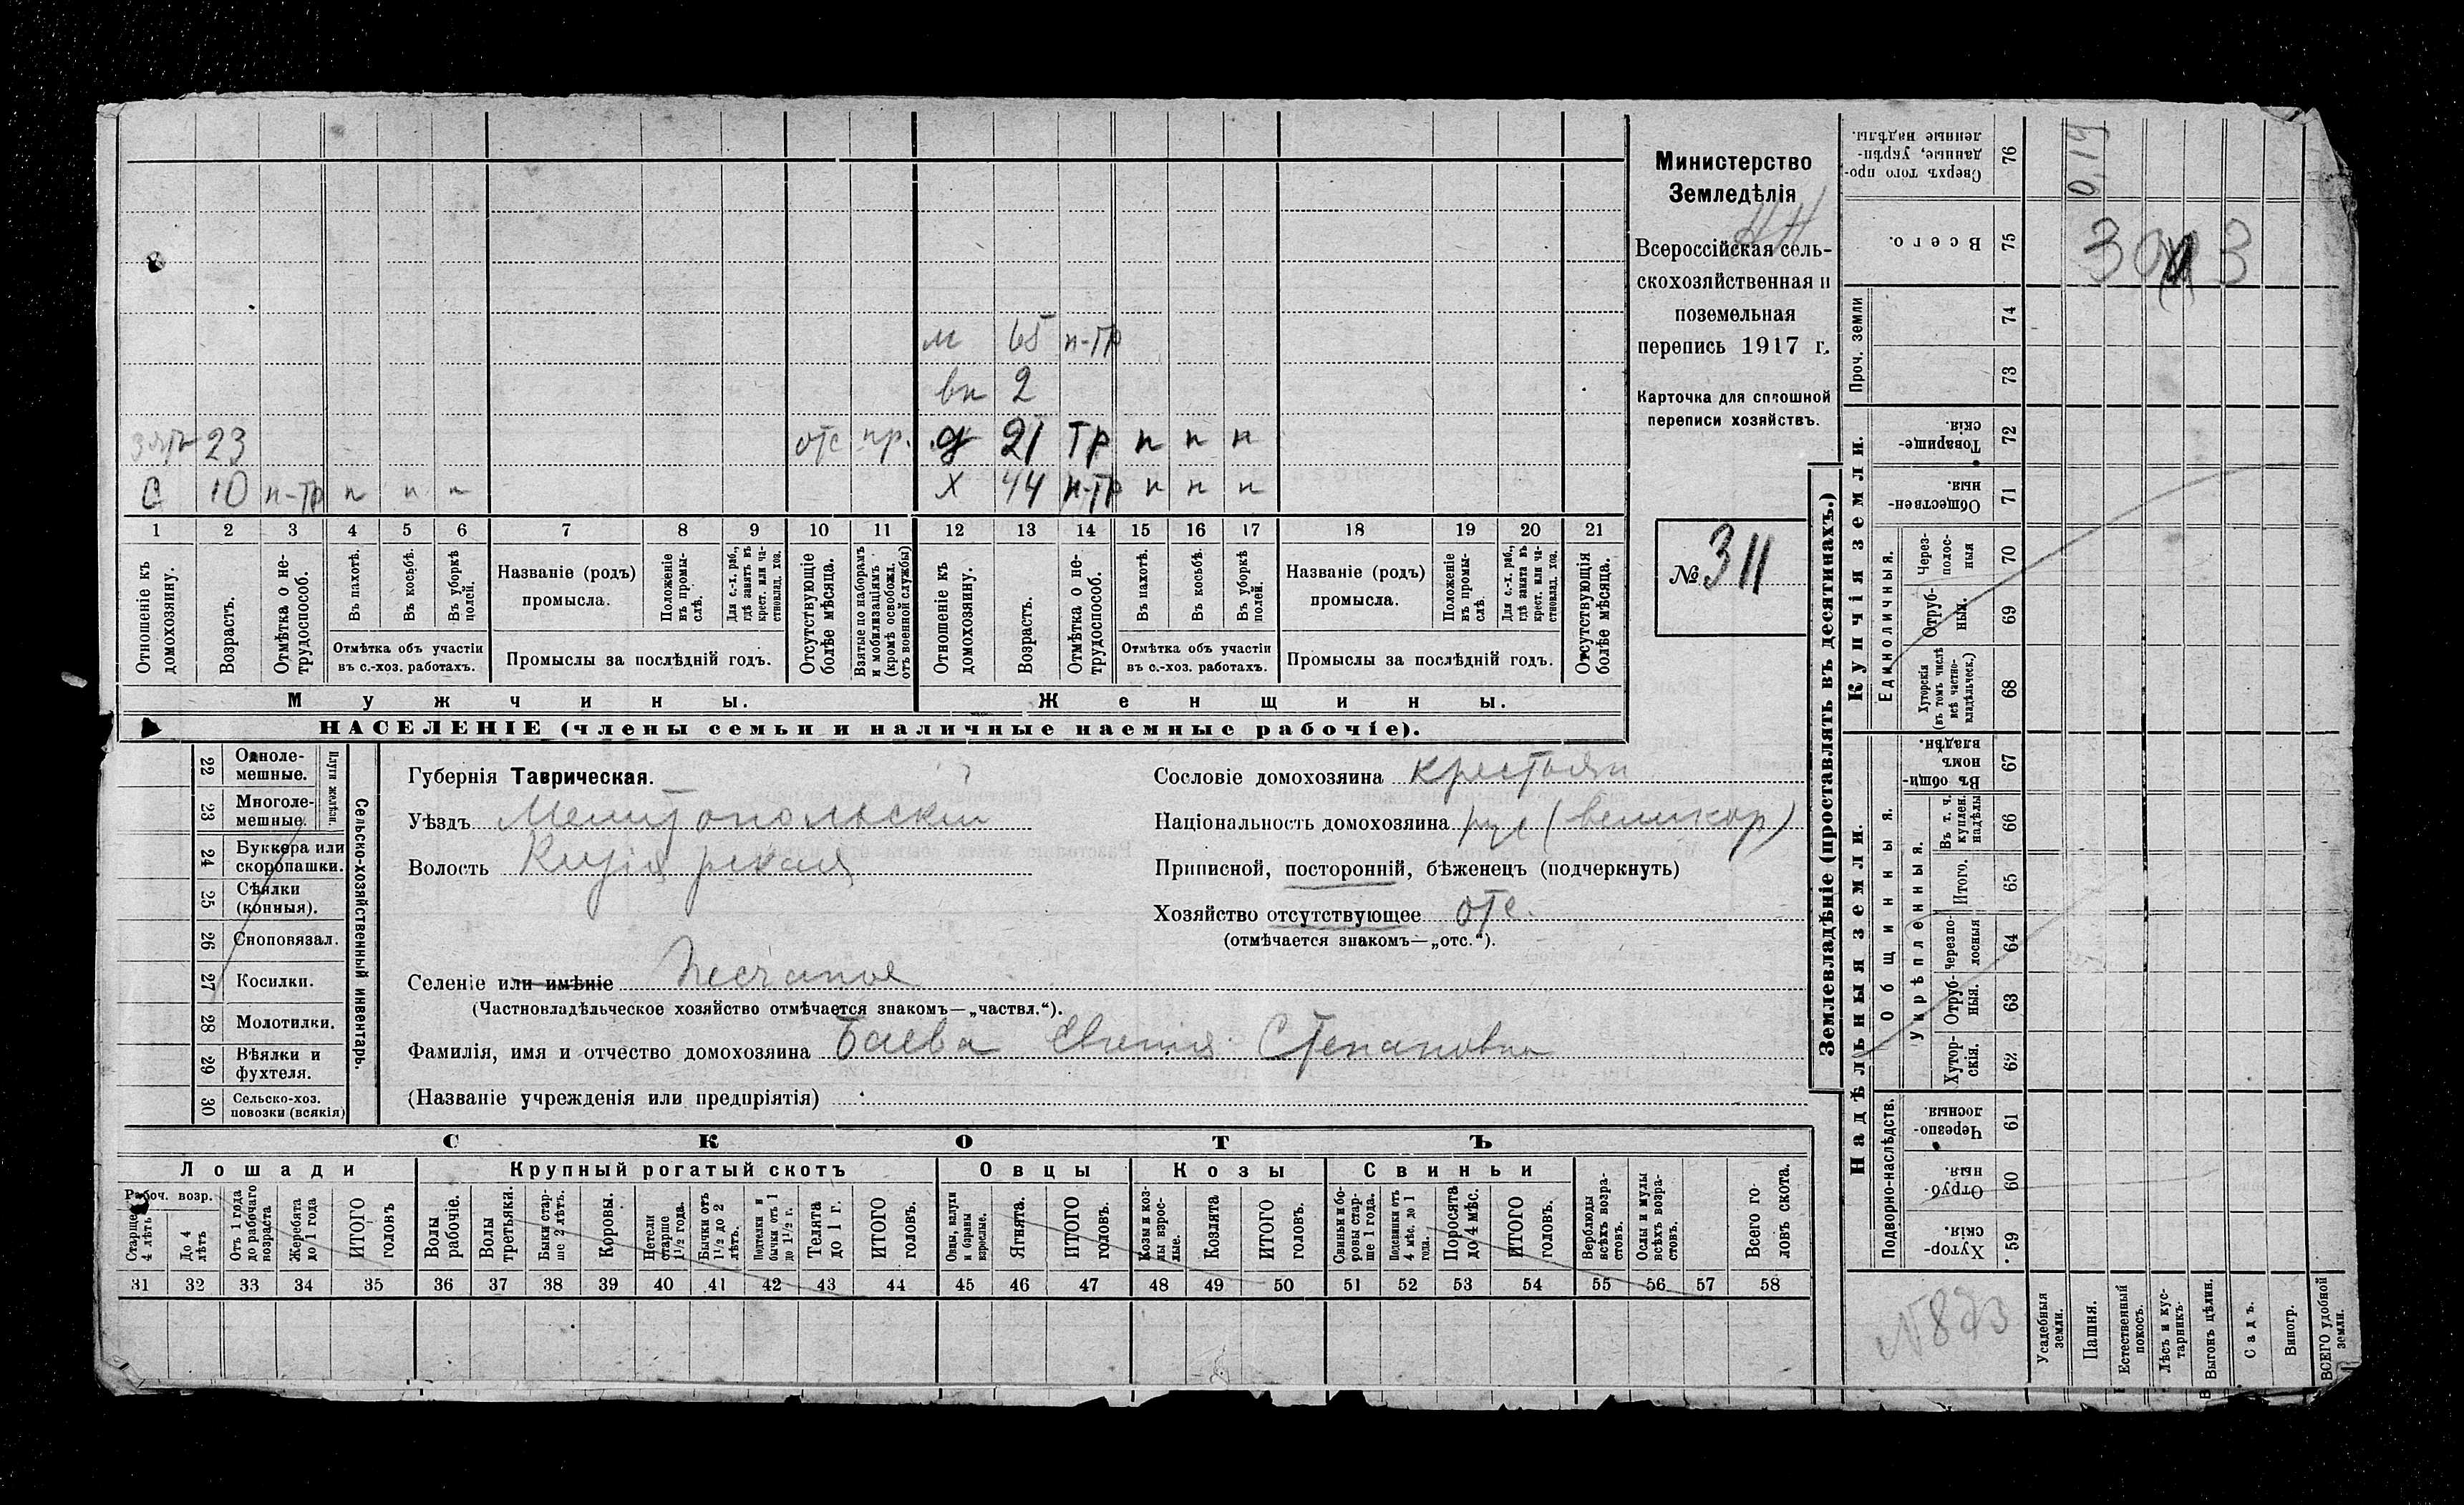 м 65 н-тр
вн 2
зять 23 отс пр. д 21 тр п п п
С 10 н-тр п п п Х 44 н-тр п п п
1 2 3 4 5 6 7 8 9 10 11 12 13 14 15 16 17 18 19 20 21
Отношеніе къ домохозяину.
Возрастъ.
Отмѣтка о нетрудоспособ.
Въ пахотѣ.
Въ косьбѣ.
Въ уборкѣ полей.
Отмѣтка объ участіи
въ с.-хоз. работахъ.
Названіе (родъ)
промысла.
Положеніе въ промыслѣ.
Для с.-х. раб., гдѣ занятъ въ крест. или частновлад. хоз.
Промыслы за послѣдній годъ.
Отсутствующіе болѣе мѣсяца.
Взятые по наборамъ и мобилизаціямъ (кромѣ освобожд. отъ военной службы)
Отношеніе къ домохозяину.
Возрастъ.
Отмѣтка о нетрудоспособ.
Въ пахотѣ.
Въ косьбѣ.
Въ уборкѣ полей.
Отмѣтка объ участіи
въ с.-хоз. работахъ.
Названіе (родъ)
промысла.
Положеніе въ промыслѣ.
Для с.-х. раб., гдѣ занята въ крест. или частновлад. хоз.
Промыслы за послѣдній годъ.
Отсутствующія болѣе мѣсяца.
Мужчины. Женщины.
НАСЕЛЕНІЕ (члены семьи и наличные наемные рабочіе).
Министерство
Земледѣлія
Всероссійская сель-
скохозяйственная и
поземельная
перепись 1917 г.
Карточка для сплошной
переписи хозяйствъ.
№ 311
22 Одноле-
мешные.
23 Многоле-
мешные.
Плуги желѣзн.
24 Буккера или
скоропашки.
25 Сѣялки
(конныя).
26 Сноповязал.
27 Косилки.
28 Молотилки.
29 Вѣялки и
фухтеля.
30 Сельско-хоз.
повозки (всякія)
Сельско-хозяйственный инвентарь.
Губернія Таврическая.
Уѣздъ Мелитопольскій
Волость
Селеніе или имѣніе Песчаное
(Частновладѣльческое хозяйство отмѣчается знакомъ—„частвл.“).
Фамилія, имя и отчество домохозяина Баева Евгенія Степановна
(Названіе учрежденія или предпріятія)
Сословіе домохозяина крестьян
Національность домохозяина рус (великор)
Приписной, посторонній, бѣженецъ (подчеркнуть)
Хозяйство отсутствующее отс.
(отмѣчается знакомъ—„отс.“).
СКОТЪ
Лошади Крупный рогатый скотъ Овцы Козы Свиньи
Рабоч. возр.
Старше 4 лѣтъ
До 4 лѣтъ
Отъ 1 года до рабочаго возраста
Жеребята до 1 года
ИТОГО головъ
Волы рабочіе.
Волы третьяки.
Быки старше 2 лѣтъ.
Коровы.
Нетели старше 1½ года.
Бычки отъ 1½ до 2 лѣтъ.
Подтелки и бычки отъ 1 до 1½ г.
Телята до 1 г.
ИТОГО головъ.
Овцы, валухи и бараны взрослые.
Ягнята.
ИТОГО головъ.
Козы и козлы взрослые.
Козлята
ИТОГО головъ.
Свиньи и боровы старше 1 года.
Подсвинки отъ 4 мѣс. до 1 года.
Поросята до 4 мѣс.
ИТОГО головъ.
Верблюды всѣхъ возрастовъ.
Ослы и мулы всѣхъ возрастовъ.
Всего головъ скота.
31 32 33 34 35 36 37 38 39 40 41 42 43 44 45 46 47 48 49 50 51 52 53 54 55 56 57 58
Землевладѣніе (проставлять въ десятинахъ.)
Купчія земли.
Проч. земли
Единоличныя.
Надѣльныя земли.
Общинныя.
Укрѣпленныя.
Подворно-наслѣдств.
76 Сверхъ того проданные, укрѣпленные надѣлы.
0,14
75 Всего.
74
73
72 Товарищескія.
71 Общественныя.
70 Черезполосныя
69 Отрубныя.
68 Хуторскія (въ томъ числѣ всѣ частновладѣльческ.)
67 Въ общинномъ владѣн.
66 Въ т. ч. куплен. надѣлы
65 Итого.
64 Черезполосныя
63 Отрубныя.
62 Хуторскія.
61 Черезполосныя.
60 Отрубныя.
59 Хуторскія.
№873
Усадебныя земли.
Пашня.
Естественный покосъ.
Лѣсъ и кустарникъ.
Выгонъ цѣлин.
Садъ.
Виногр.
ВСЕГО удобной земли.